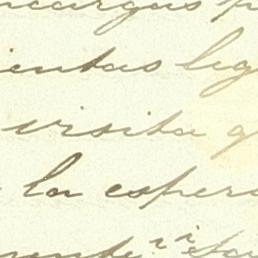 ncargas p
ientas leg
visita q
la espera